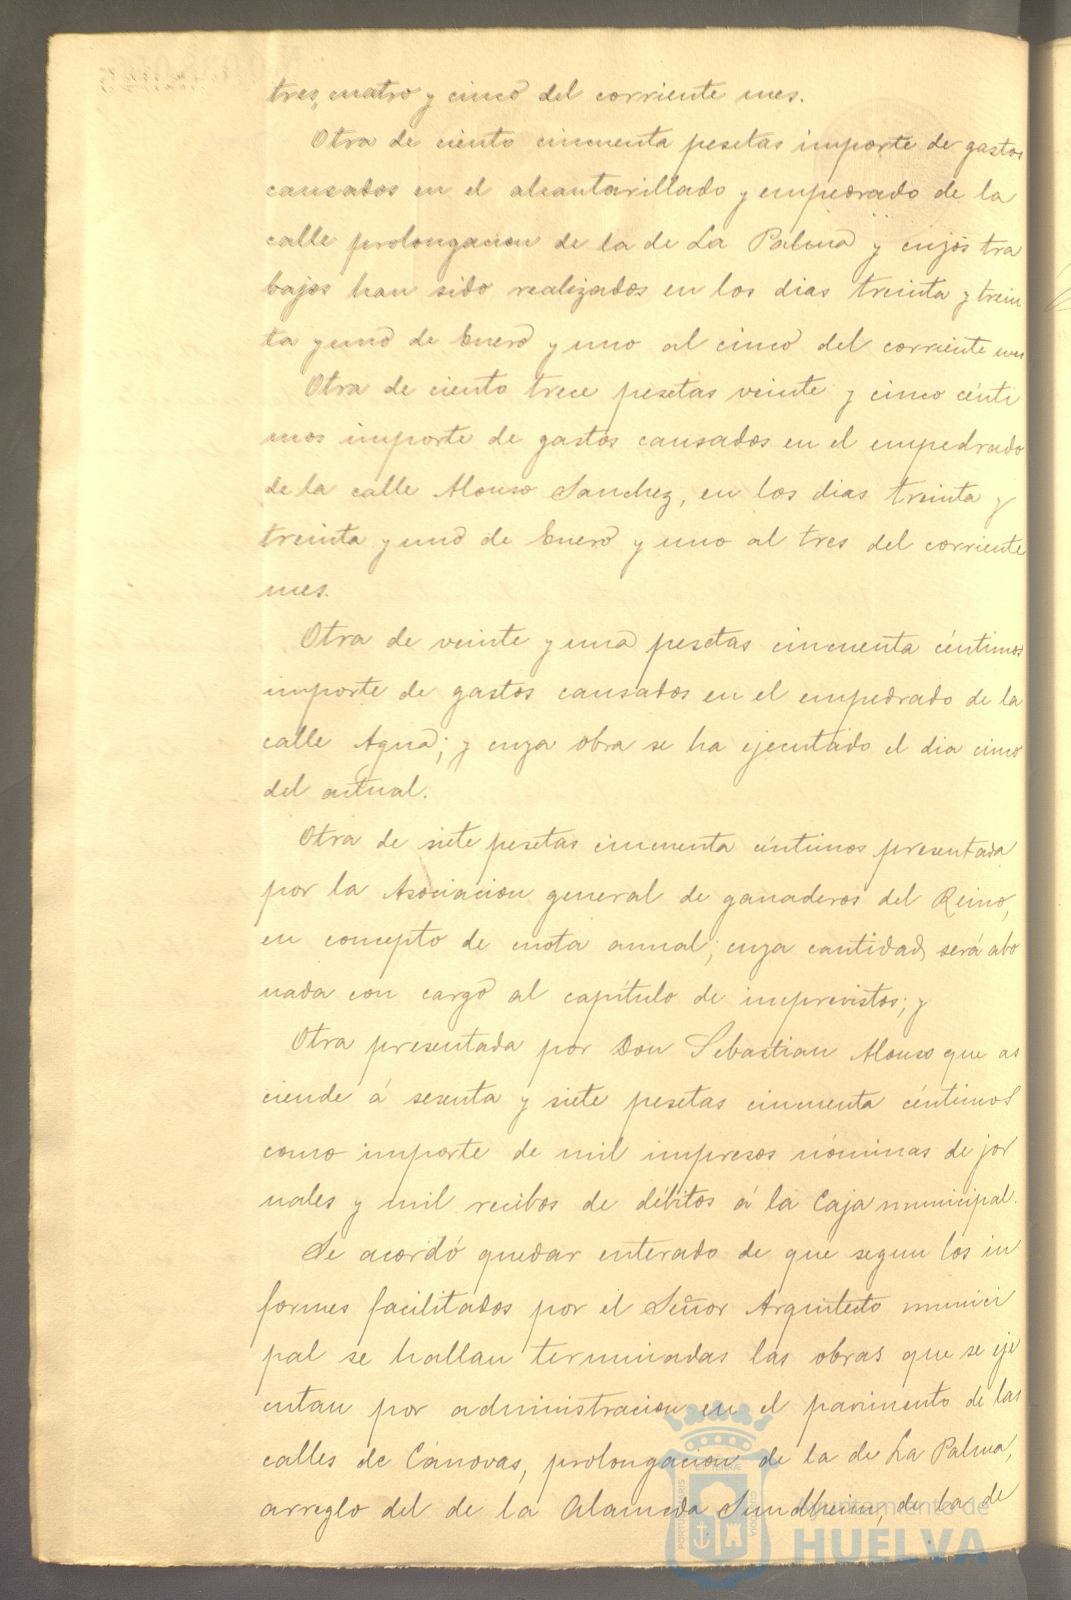 tres, cuatro y cinco del corriente mes.
Otra de ciento cincuenta pesetas importe de gastos
causados en el alcantarillado y empedrado de la
calle prolongacion de la de La Palma y cuyos tra
bajos han sido realizados en los dias treinta y trein
ta y uno de Enero y uno al cinco del corriente mes
Otra de ciento trece pesetas veinte y cinco cénti
mos importe de gastos causados en el empedrado
de la calle Alonso Sanchez, en los dias treinta y
treinta y uno de Enero y uno al tres del corriente
mes.
Otra de veinte y una pesetas cincuenta céntimos
importe de gastos causados en el empedrado de la
calle Agua; y cuya obra se ha ejecutado el dia cinco
del actual.
Otra de siete pesetas cincuenta céntimos presentada
por la Asociacion general de ganaderos del Reino,
en concepto de cuota annal; cuya cantidad, será abo
nada con cargo al capítulo de imprevistos; y
Otra presentada por Don Sebastian Alonso que as
ciende á sesenta y siete pesetas cincuenta céntimos
como importe de mil impresos nóminas de jor
nales y mil recibos de débitos á la Caja municipal.
Se acordó quedar enterado de que segun los in
formes facilitados por el Señor Arquitecto munici
pal se hallan terminadas las obras que se eje
cutan por administracion en el pavimento de las
calles de Cánovas, prolongacion de la de La Palma,
arreglo del de la Alameda Sundheim, de la de
Ayuntamiento de
HUELVA